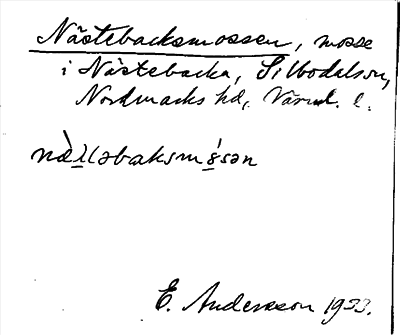 Nästebacksmossen, mosse
i Nästebacka, Silbodals sn,
Nordmarks hd, Värml. l.
E. Andersson 1933.